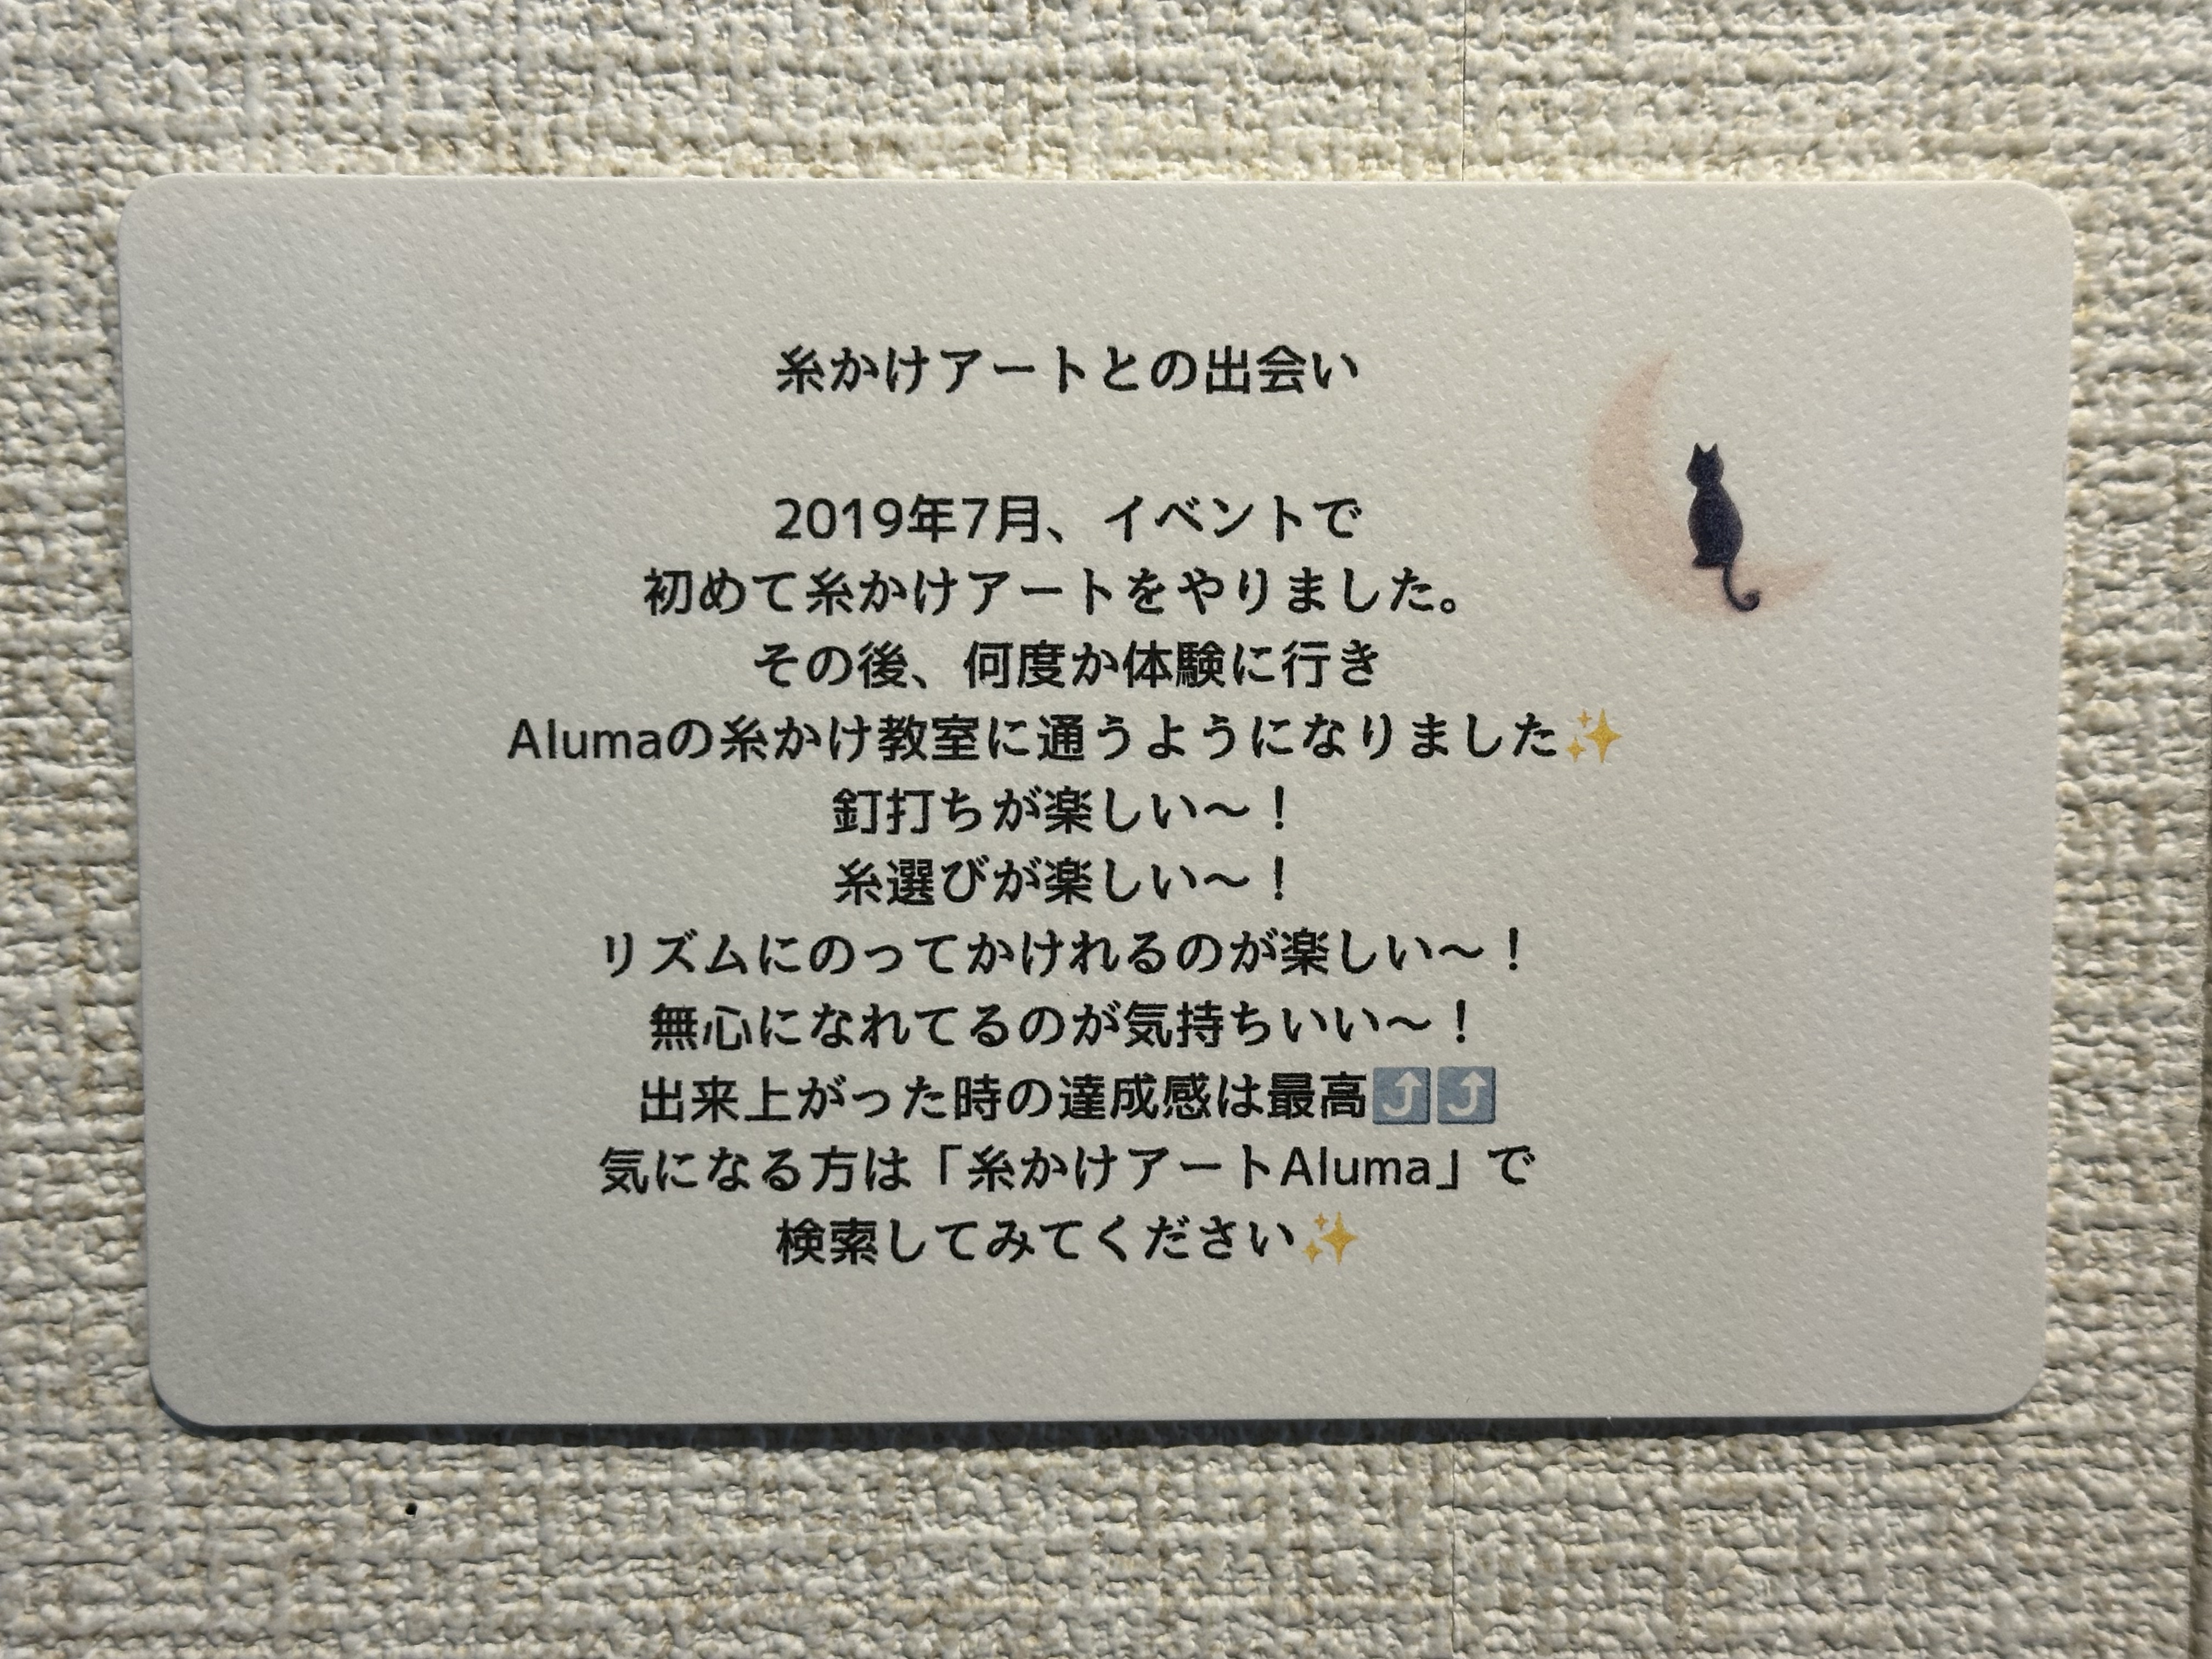 糸かけアートとの出会い
2019年7月、イベントで
初めて糸かけアートをやりました。
その後、何度か体験に行き
Alumaの糸かけ教室に通うようになりました✨
釘打ちが楽しい〜！
糸選びが楽しい〜！
リズムにのってかけれるのが楽しい〜！
無心になれてるのが気持ちいい〜！
出来上がった時の達成感は最高⤴️⤴️
気になる方は「糸かけアートAluma」で
検索してみてください✨